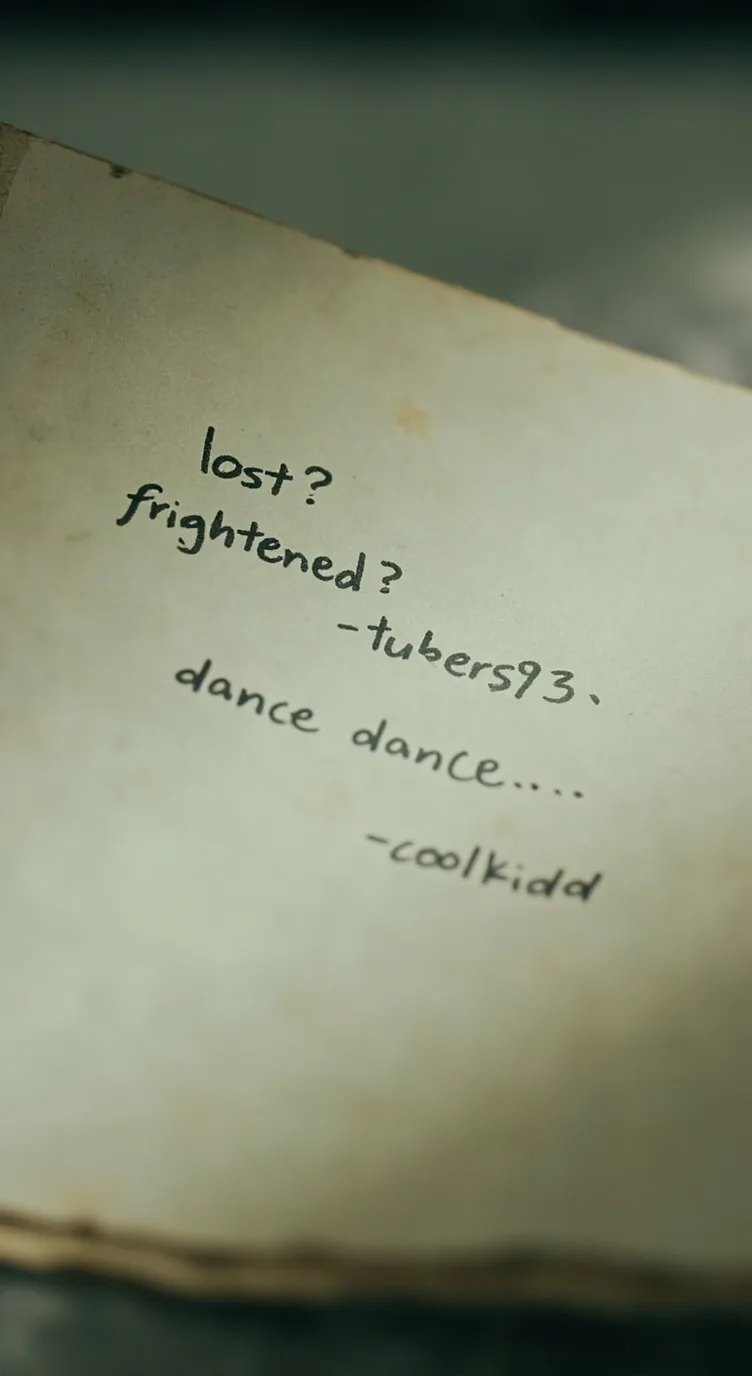 lost?
frightened?
-tubers93.
dance dance....
-coolkidd